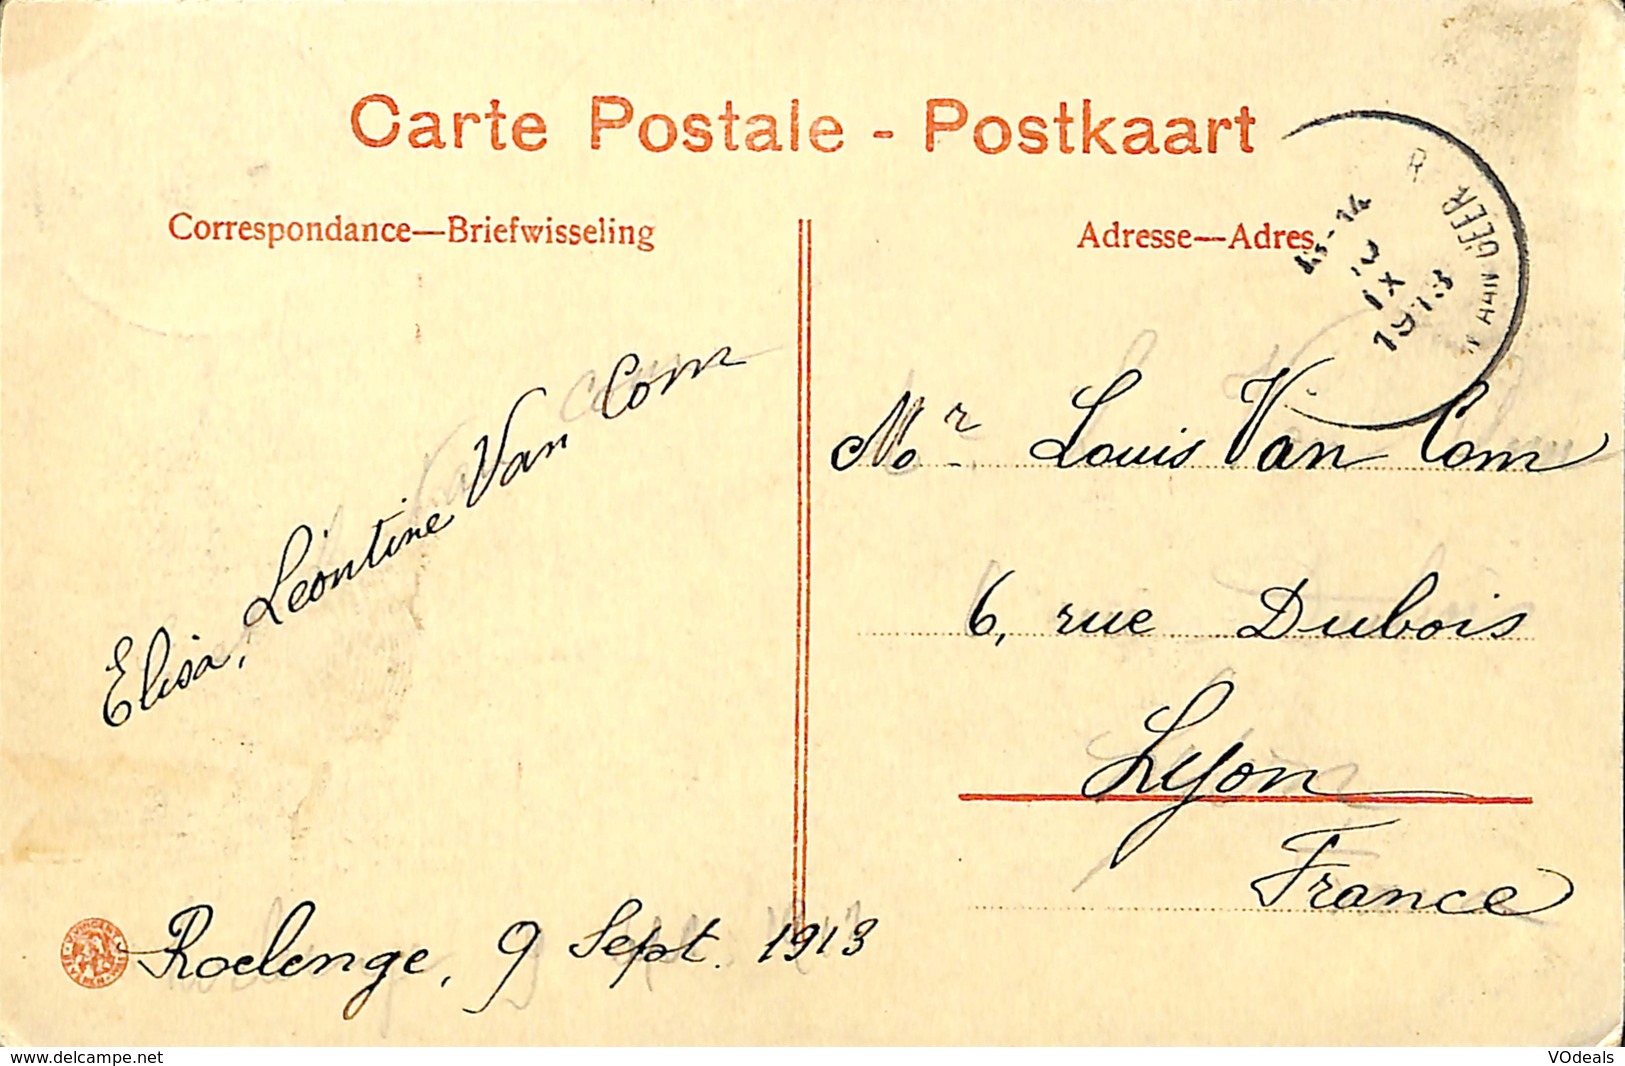 Carte Postale - Postkaart
Correspondance—Briefwisseling
Adresse—Adres
AAN GEER
13-14
IX
1913
Elisa, Léontine Van Com
Mr Louis Van Com
6, rue Dubois
Lyon
France
Roclenge, 9 Sept. 1913
www.delcampe.net
VOdeals